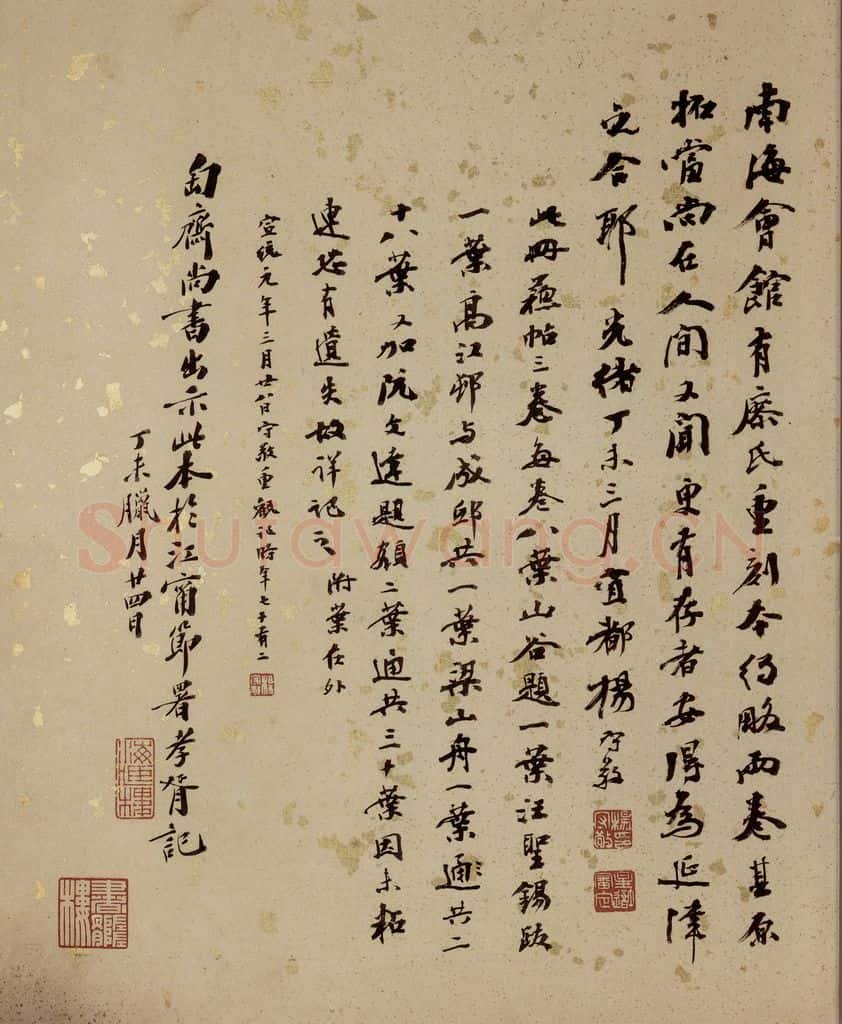 南海會館有廖氏重刻本得略兩卷其原
拓當尚在人間又聞更有存者安得為延津
之合耶 光緒丁未三月宜都楊守敬
此冊蘇帖三卷每卷八葉山谷題一葉汪聖錫跋
一葉高江邨与成邸共一葉梁山舟一葉通共二
十八葉又加阮文達題額二葉通共三十葉因未粘
連恐有遺失故詳記之 附葉在外
宣統元年三月廿八日守敬重觀記時年七十有二
匋齋尚書出示此本於江甯節署孝胥記
丁未臘月廿四日
Shufawang.CN